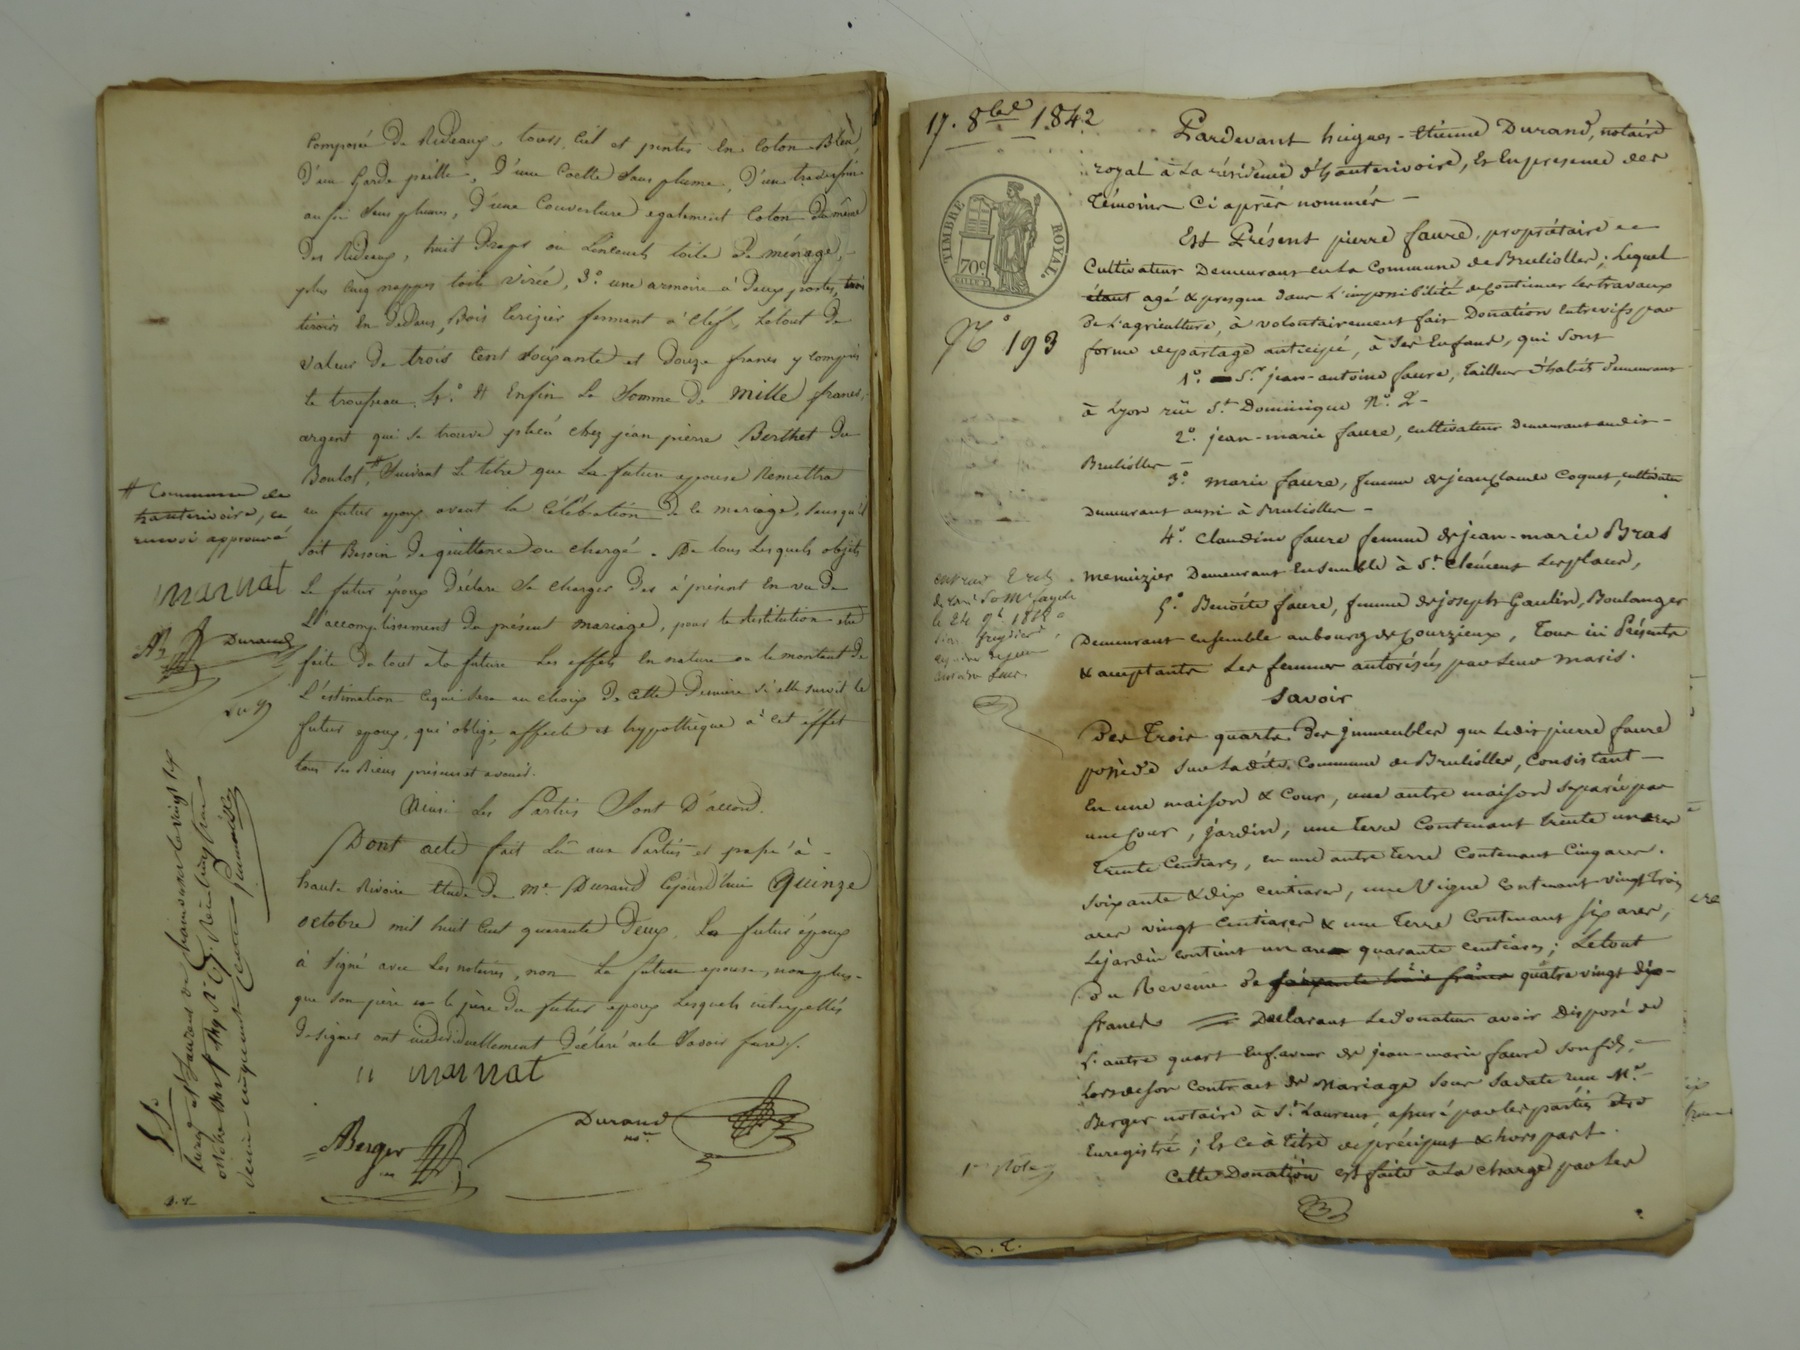 Composé de Rideaux, tours, ciel et pentes en Coton Bleu,
d'un Garde paille, d'une Coette sans plume, d'un traversin
aussi sans plumes, d'une Couverture egalement Coton du même
des Rideaux, huit Draps ou Linceuls toile de ménage,
plus Cinq nappes toile virée, 3.° une armoire à deux portes, trois
tiroirs en dedans, Bois Cerizier fermant à Clef, Letout de
valeur de trois Cent Soixante et douze francs y compris
le trousseau. 4.° Et Enfin La Somme de mille francs,
argent qui se trouve placé chez jean pierre Berthet du
Boulot, # Suivant Le titre que La future epouse Remettra
au futur epoux avant la Célébration de ce mariage, Sans qu'il
soit Besoin de quittance ou chargé. De tous Lesquels objets
Le futur époux Déclare Se Charger Des à présent En vue de
L'accomplissement du présent mariage, pour la Restitution etre
faite du tout à la future Les effets En nature ou le montant de
L'estimation Ce qui sera au choix de Cette Derniere si elle survit le
futur epoux, qui oblige, affecte et hypothèque à Cet effet
tous Ses Biens présens et avenir.
Ainsi Les Parties Sont D'accord.
Dont acte fait Lû aux Parties et passé à
haute Rivoire Etude de M.e Durand Cejourd'hui Quinze
octobre mil huit Cent quarante Deux. Le futur époux
à Signé avec Les notaires, non La future epouse, non plus
que Son père et le père du futur epoux Lesquels interpellés
de signer ont individuellement Déclaré ne le Savoir faire.
Marnat
ABerger
Durand
no.re
# Commune de
hauterivoire, ce
renvoi approuvé
Marnat
AB
Durand
17. 8bre 1842
TIMBRE ROYAL.
70c.
N° 193
Pardevant hugues-Etienne Durand, notaire
royal à La résidence d'hauterivoire, Et Enpresence des
Témoins Ci après nommés —
Est Présent pierre faure, propriétaire et
Cultivateur Demeurant en la Commune de Brullioles; Lequel
étant agé & presque dans L'impossibilité de continuer Les travaux
de L'agriculture, à volontairement fait Donation Entrevifs par
forme de partage anticipé, à Ses Enfans, qui Sont
1.° S.r jean-antoine faure, Tailleur d'habits demeurant
à Lyon rüe S.t Dominique N.° 2 —
2.° jean-marie faure, cultivateur demeurant audit
Brullioles —
3.° marie faure, femme de jean claude Coquet, cultivateur
Demeurant aussi à Brullioles —
4.° Claudine faure femme de jean-marie Bras
Menuizier Demeurant Ensemble à S.t Clément Lesplaces,
5.° Benoite faure, femme de joseph Gaulin, Boulanger
Demeurant ensemble aubourg de Courzieux, Tous ici Présents
& acceptants Les femmes autorisées par Leur maris.
Savoir
Des Trois quarts Des Immeubles que Ledit pierre faure
possède sur Ladite Commune de Brullioles, Consistant —
En une maison & Cour, une autre maison séparée par
une Cour, jardin, une Terre Contenant trente un ares
Trente Centiares, en une autre Terre Contenant Cinq ares
soixante & dix centiares, une Vigne Contenant vingt Trois
ares vingt Centiares & une Terre Contenant Six ares,
Le jardin contient un are quarante centiares; Le tout
Du Revenu de soixante trois francs quatre vingt dix
francs = Déclarant Le Donateur avoir disposé de
L'autre quart En faveur de jean-marie faure son fils,
Lors de son Contrait de Mariage sous Sadate reçu M.e
Berger notaire à S.t Laurent, assuré par les parties être
Enregistré; Et Ce à titre de préciput & hors part.
Cette Donation est faite à La charge par Les
1er Rôle